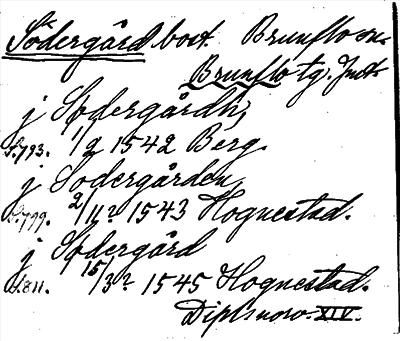 Södergård bost. Brunflo sn.
Brunflo tg. Jmtl.
j Sødergårdh,
S.793. 1/2 1542 Berg.
j Sodergården,
S.799. 2/11? 1543 Hognestad.
j Sødgård
S.811. 15/3? 1545 Hognestad.
Dipl. norv. XIV.